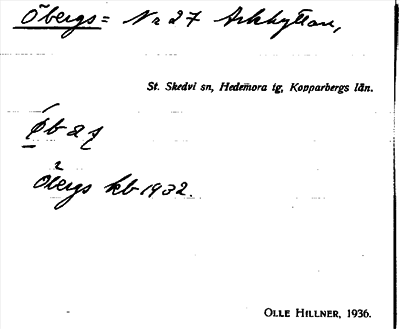 Öbergs = Nr 27 Arkhyttan,
St. Skedvi sn, Hedemora tg, Kopparbergs län.
Öbergs kb 1932.
OLLE HILLNER, 1936.